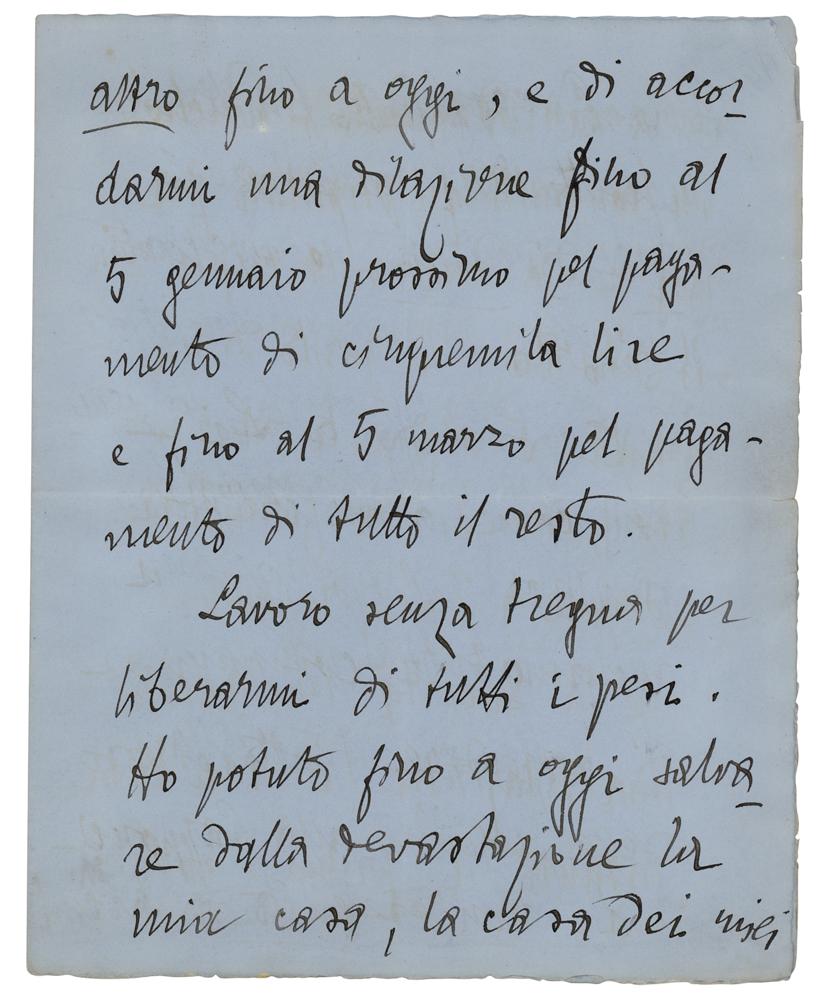 altro fino a oggi, e di accor-
darmi una dilazione fino al
5 gennaio prossimo pel paga-
mento di cinquemila lire
e fino al 5 marzo pel paga-
mento di tutto il resto.
Lavoro senza tregua per
liberarmi di tutti i pesi.
Ho potuto fino a oggi salva-
re dalla devastazione la
mia casa, la casa dei miei